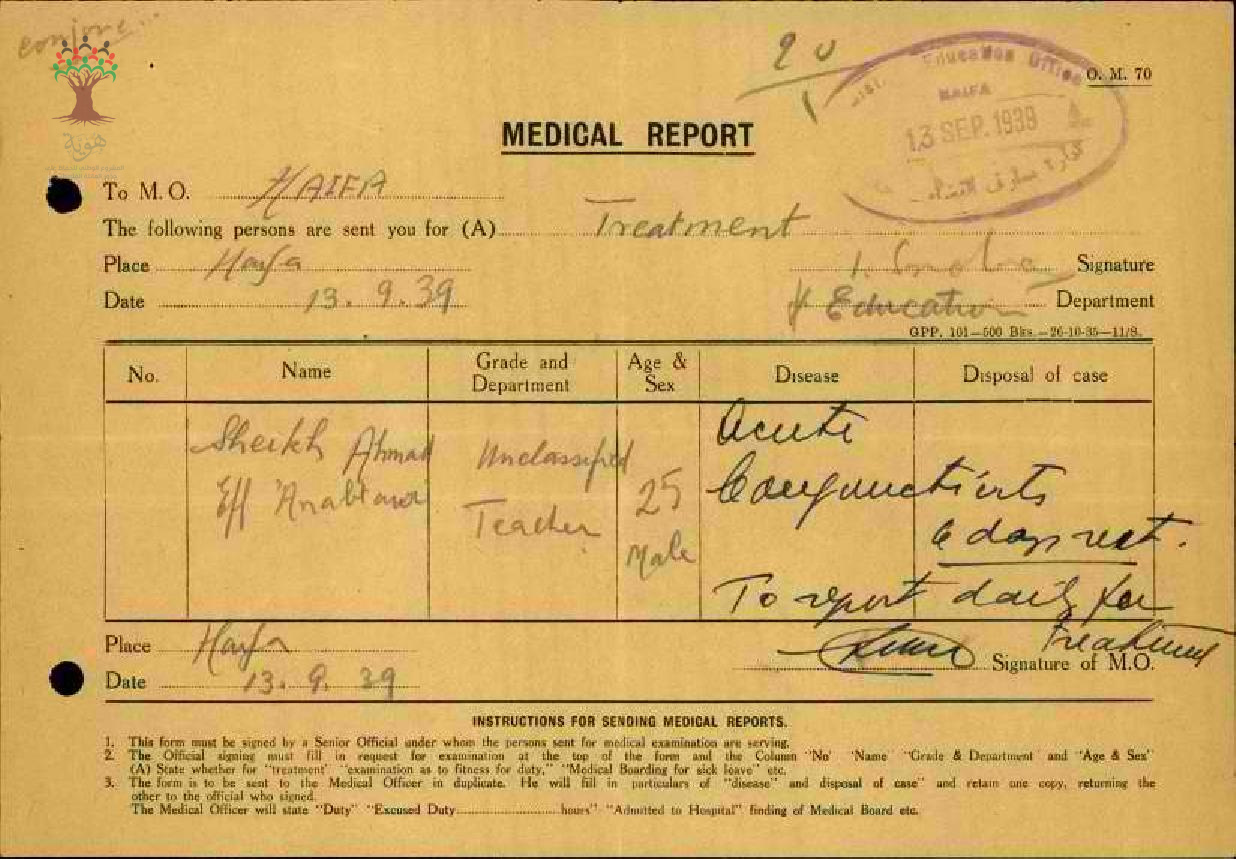 هوية
20
1
District Education Office
HAIFA
13 SEP. 1939
O. M. 70
MEDICAL REPORT
To M.O. HAIFA
The following persons are sent you for (A) Treatment
Place Hayfa
Signature
Date 13. 9. 39
Education Department
GPP. 101—500 Bks.—26-10-35—11/S.
No. Name Grade and Department Age & Sex Disease Disposal of case
Sheikh Ahmad Eff 'Anabtawi
Unclassified Teacher
25 Male
Acute Conjunctivitis
6 days rest.
To report daily for Treatment
Place Hayfa
Signature of M.O.
Date 13. 9. 39
INSTRUCTIONS FOR SENDING MEDICAL REPORTS.
1. This form must be signed by a Senior Official under whom the persons sent for medical examination are serving.
2. The Official signing must fill in request for examination at the top of the form and the Column "No" "Name" "Grade & Department" and "Age & Sex"
(A) State whether for "treatment" "examination as to fitness for duty," "Medical Boarding for sick leave" etc.
3. The form is to be sent to the Medical Officer in duplicate. He will fill in particulars of "disease" and disposal of case" and retain one copy, returning the
other to the official who signed.
The Medical Officer will state "Duty" "Excused Duty..............................hours" "Admitted to Hospital" finding of Medical Board etc.